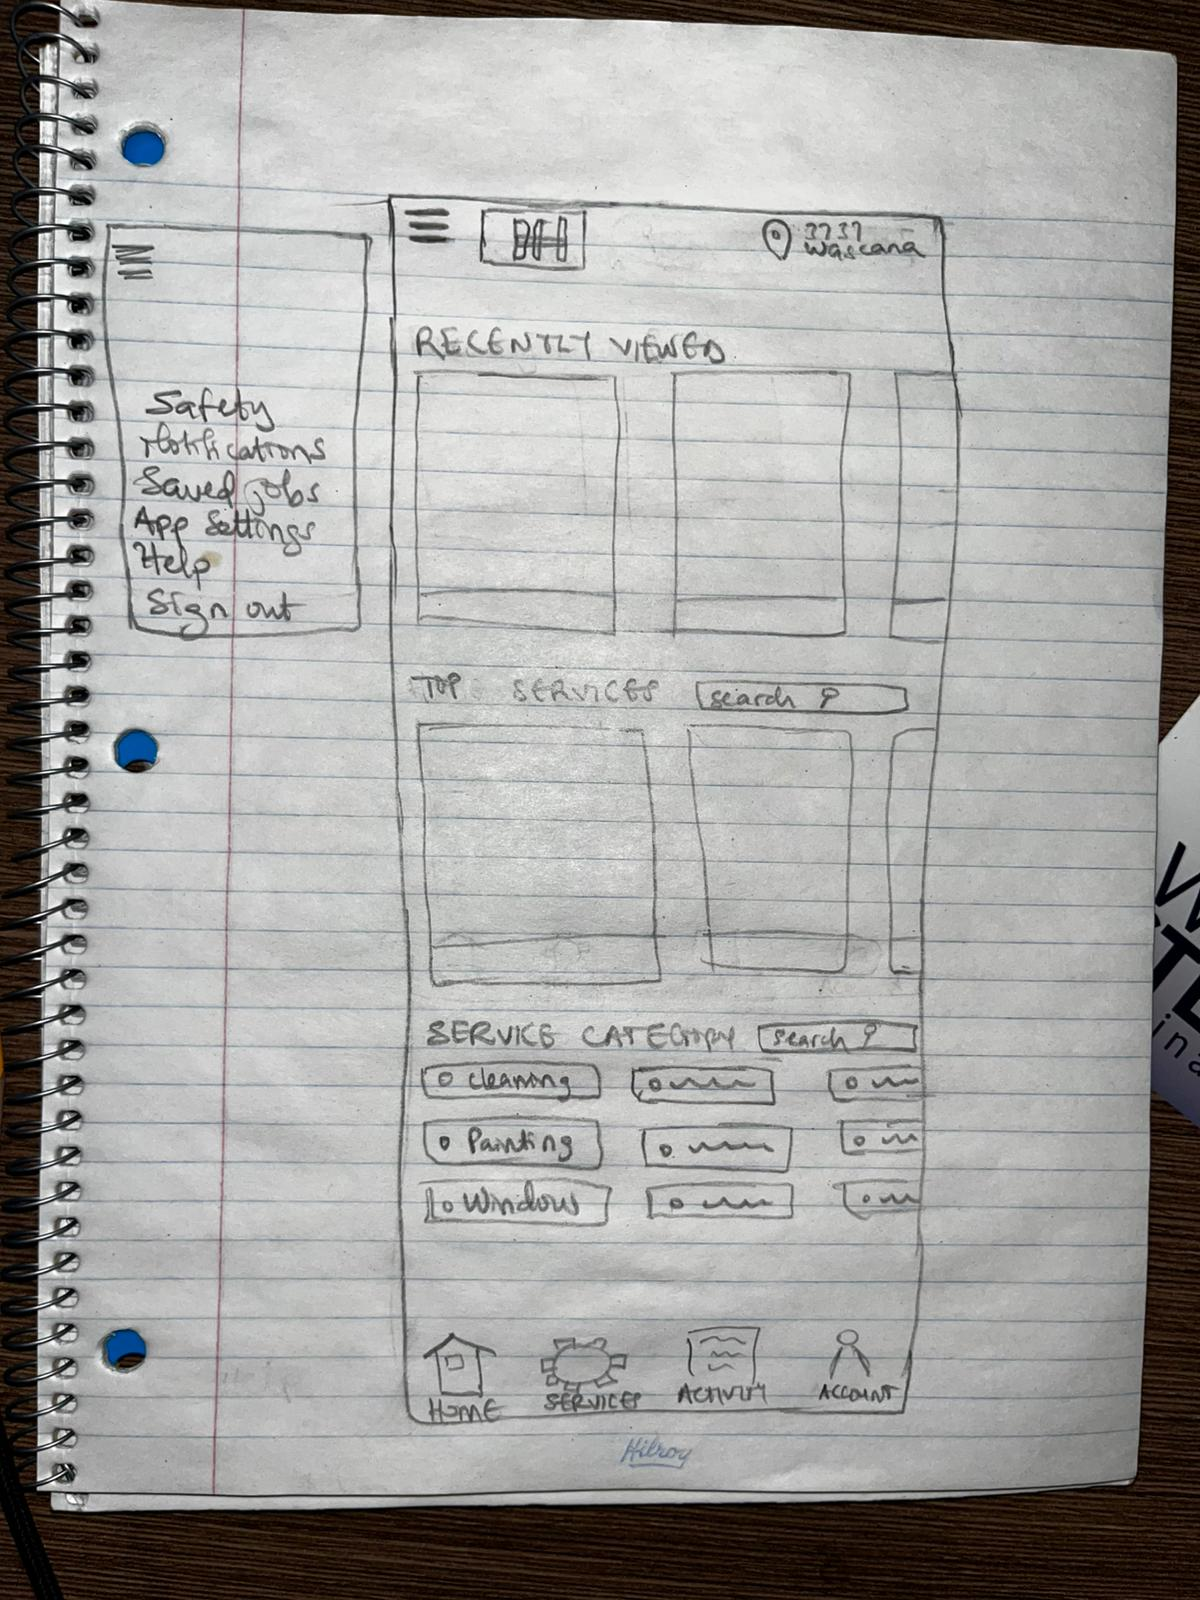 3737
Wascana
Safety
Notifications
Saved jobs
App Settings
Help
Sign out
RECENTLY VIEWED
TOP SERVICES
search
SERVICE CATEGORY
search
cleaning
Painting
Window
HOME
SERVICES
ACTIVITY
ACCOUNT
Hilroy